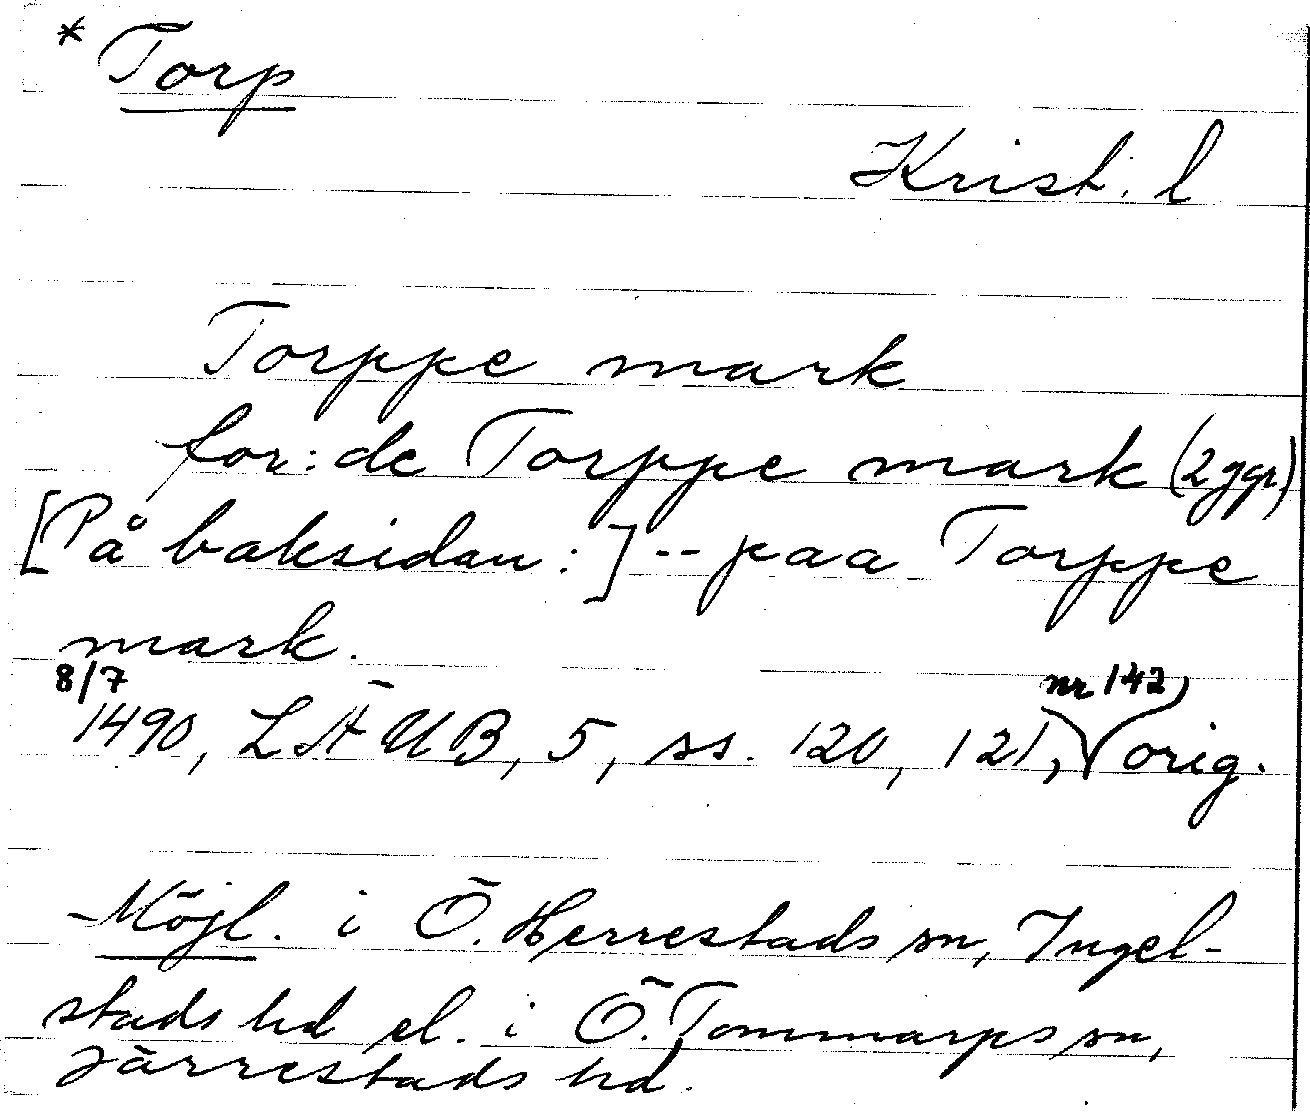 * Torp
Krist. l
Torppe mark
for: de Torppe mark (2 ggr.)
[På baksidan:] -- paa Torppe
mark.
8/7
1490, LÄUB, 5, ss. 120, 121, nr 142, orig.
Möjl. i Ö. Herrestads sn, Ingel-
stads hd el. i Ö. Tommarps sn,
Järrestads hd.